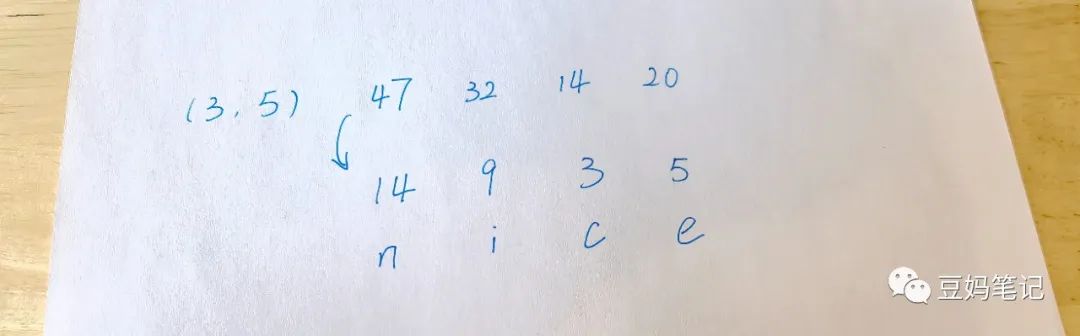 (3, 5) 47 32 14 20
14 9 3 5
n i c e
豆妈笔记